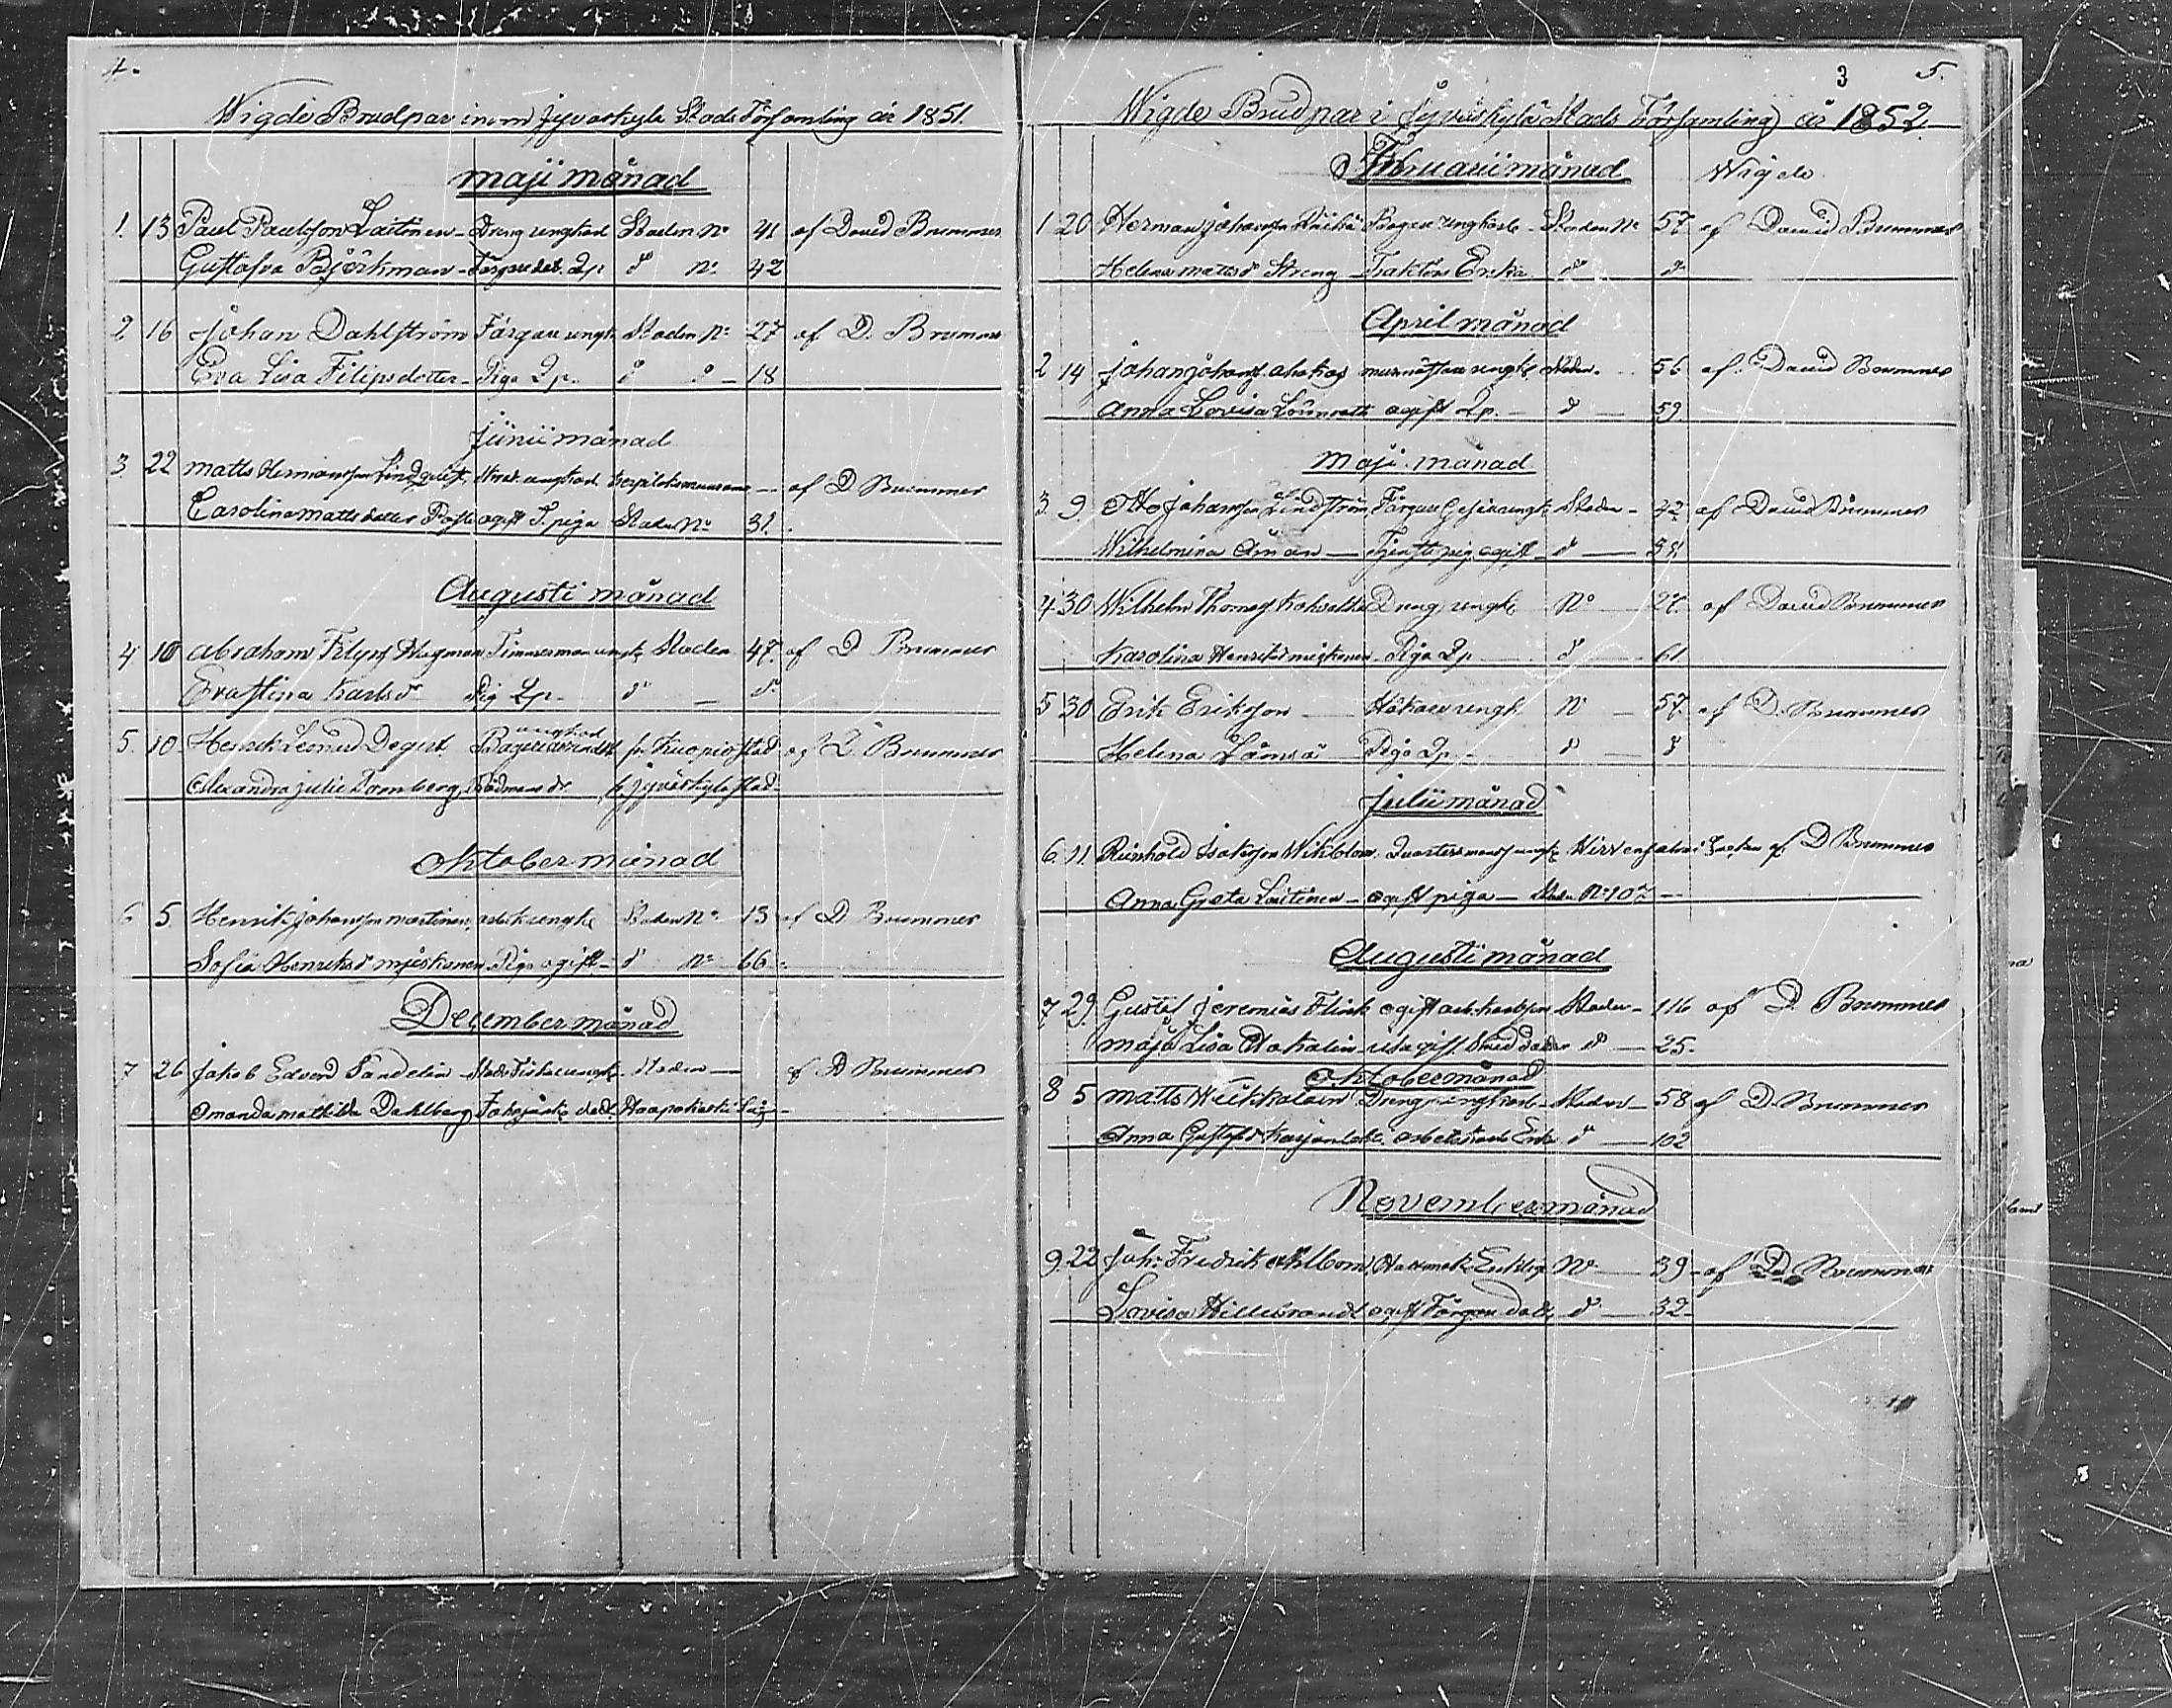 4.
Wigde Brudpar inom Jyväskyla Stads Församling år 1851.
Maji månad
1. 13 Paul Paulsson Laitinen - Dreng ungkarl Staden No 41 af David Brummer
Gustafva Björkman - Färgare dot. Qp d No 42
2 16 Johan Dahlström Färgare ungk Staden No 27 af D. Brummer
Eva Lisa Filipsdotter - Piga Qp. d d - 18
Junii månad
3 22 Matts Hermansson Lindqvist, ungkarl af D Brummer
Carolina Mattsdotter ogift T. piga Staden No 31.
Augusti månad
4 10 Abraham Filipss Wagman Timmerman ungk Staden 47. af D Brummer
Eva Stina Karlsd Pig Qp. d - d
5. 10 Henrik Leonard Degert Bagare ungkarl fr Kuopio stad af D Brummer
Alexandra Julie Tornberg Rådmans dr fr Jyväskyla stad
Oktober månad
6 5. Henrik Johansson Martinen, ungk Staden No 13 af D Brummer
Sofia Henriksd Mieskonen Piga ogift - d No 66.
December månad
7 26 Jakob Edvard Sandelin - Stads Fiskal ungk - Staden - af D Brummer
Amanda Mathilda Dahlberg dott.
3 5.
Wigde Brudpar i Jyväskylä Stads Församling år 1852
Februarii månad Wigde
1 20 Herman Johansson Bagare ungkarl - Staden No 57 af David Brummer
Helena Mattsdr Streng Enka d d
April månad
2 14 Johan Johanss Ahokas ungk, Staden. 56 af David Brummer
Anna Lovisa Lönnroth ogift Qp. - d - 59.
Maji månad
3 9. Otto Johansson Lindström Färgare Gesäll ungk Staden - 42 af David Brummer
Wilhelmina Åman - Tjenste pig. ogift - d
4 30 Wilhelm Thomass Dreng ungk No 27. af David Brummer
Karolina Henriksd Mieskonen - Piga Qp - d - 61
5 30 Erik Eriksson - Hökare ungk No - 57. af D. Brummer
Helena Lämsä Piga Qp. - d - d
Julii månad
6. 11. Reinhold Isaksson Wikblom. ungk af D Brummer
Anna Greta Laitinen - ogift piga - Staden No 107 -
Augusti månad
7 29. Gustaf Jeremias Flink ogift Staden - 116 af D. Brummer
Maja Lisa ogift d - 25.
Oktober månad
8 5 Matts Dreng ungkarl - Staden - 58 af D. Brummer
Anna Gustafsd Enka d - 102
November månad
9. 22 Joh: Fredrik Ahlbom, No - 39 - af D. Brummer
Lovisa Hillebrandt ogift Färgare dott. d - 32 -